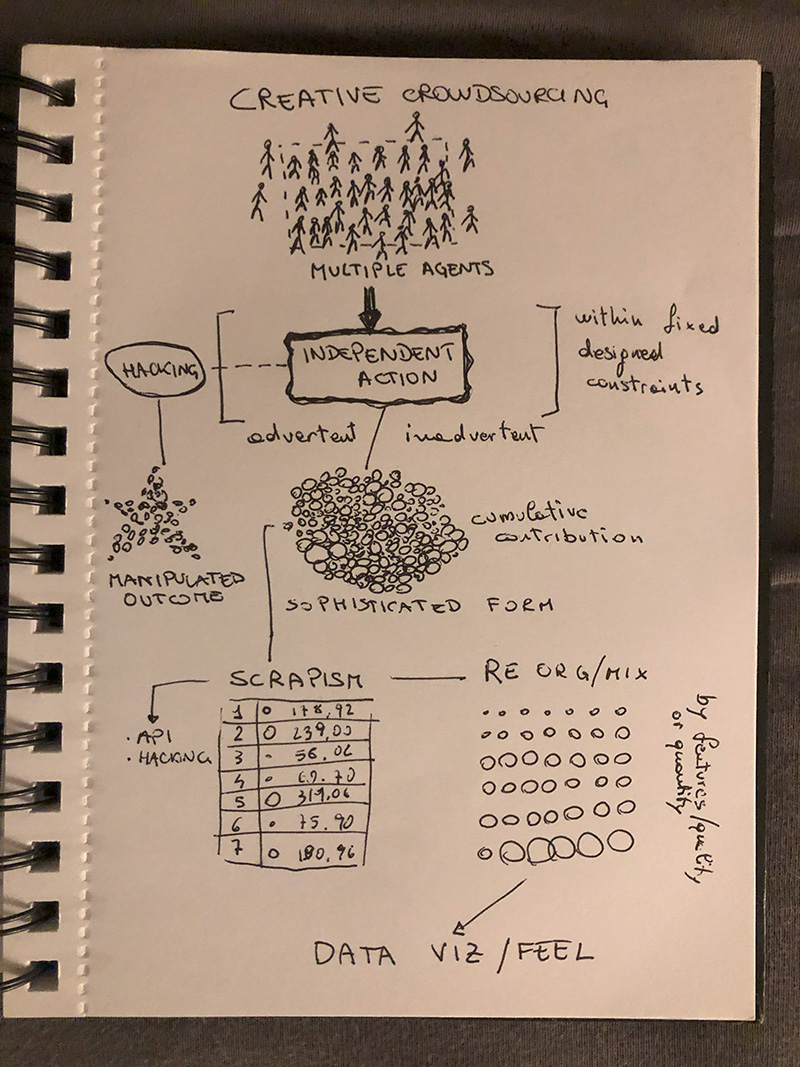 CREATIVE CROWDSOURCING
MULTIPLE AGENTS
HACKING
INDEPENDENT
ACTION
within fixed
designed
constraints
advertent inadvertent
cumulative
contribution
MANIPULATED
OUTCOME
SOPHISTICATED FORM
SCRAPISM
RE ORG/MIX
· API
· HACKING
1 178,92
2 239,00
3 56.06
4 69.70
5 319.06
6 75.90
7 180,96
by features/quality
or quantity
DATA VIZ/FEEL